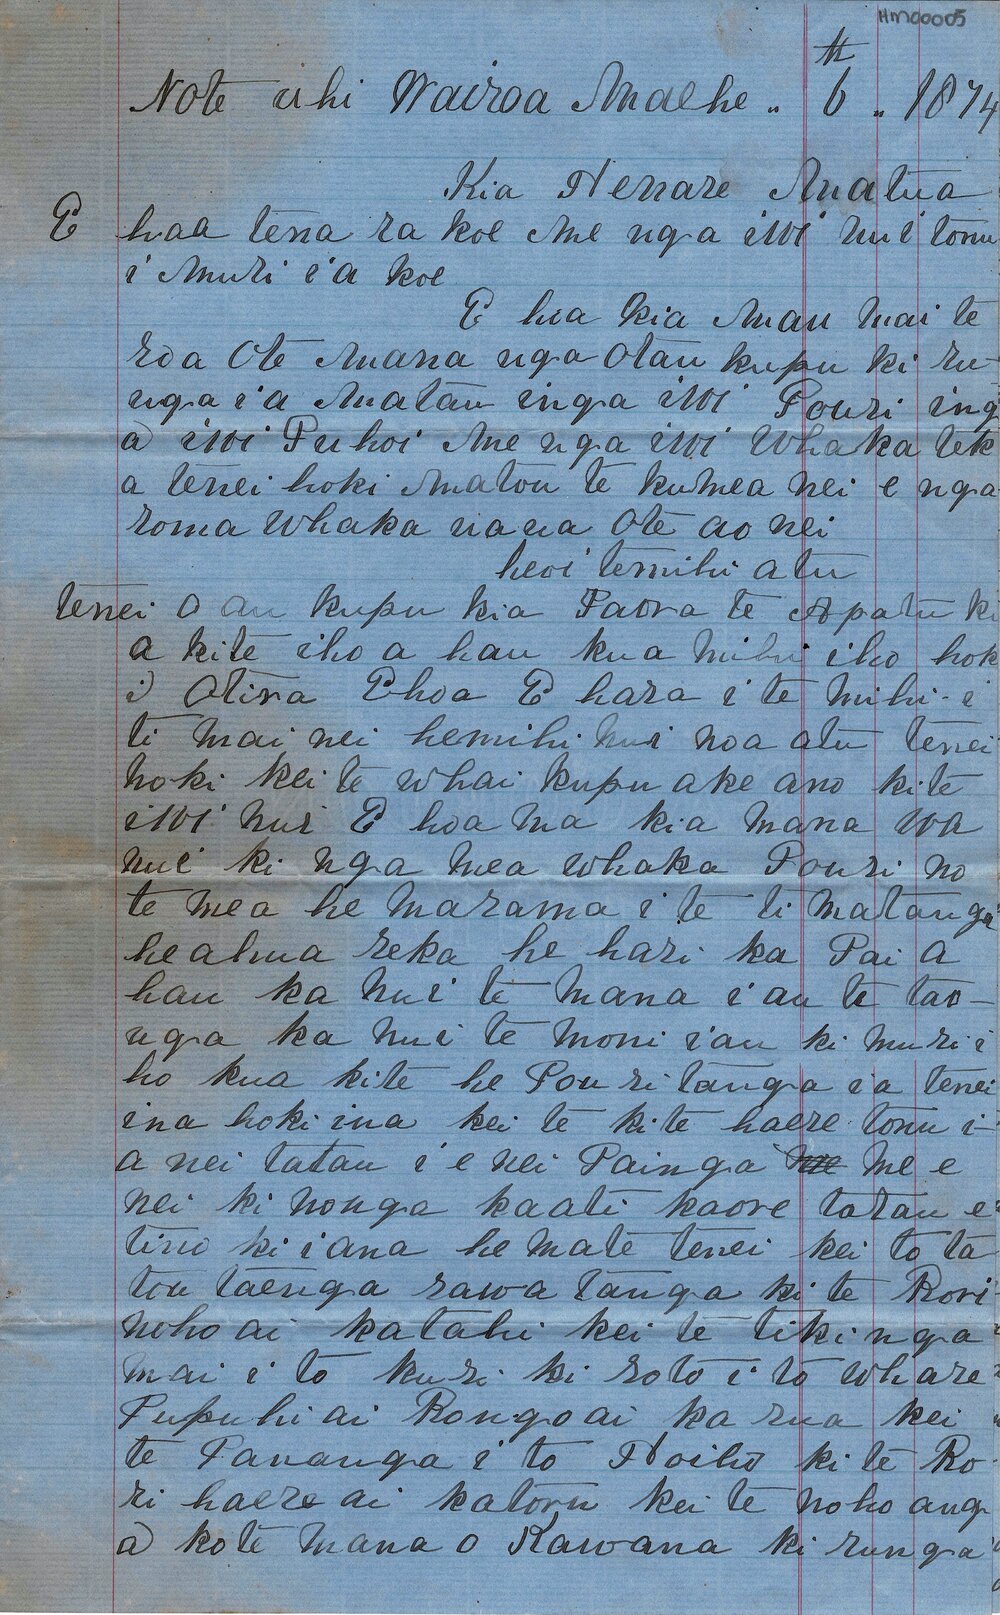 HM00005
th
Note uhi Wairoa Maehe " 6 " 1874
Kia Henare Matua
E hoa tena ra koe me nga iwi nui tonu
i muri i'a koe
E hoa kia mau mai te
roa Ote mana nga Otau kupu ki ru-
nga i'a Matau inga iwi Pouri ing
a iwi Puhoi me nga iwi whaka tek
a tenei hoki Matou te kumea nei e nga
roma whaka nana Ote ao nei
heoi temihi atu
tenei O au kupu kia Paora te Apatu ki
a kite iho a hau kua mihi iho hok
i Otira Ehoa E hara i te mihi i
ti mai nei hemihi nui noa atu tenei
hoki kei te whai kupu ake ano kite
iwi nui E hoa ma kia mana wa
nui ki nga mea whaka Pouri no
te mea he marama i te ti matanga
he ahua reka he hari ka Pai a
hau ka nui te mana i'au te tao-
nga ka nui te moni i'au ki muri i
ho kua kite he Pouritanga ia tenei
ina hoki ina kei te kite haere tonu i-
a nei tatau i e nei Painga me e
nei ki nonga kaati kaore tatau e
tino ki i ana he mate tenei kei to ta
tou taenga rawa tanga ki te Rori
noho ai katahi kei te tikinga
mai i to kuri ki roto i to whare
Pupuhi ai Rongo ai ka rua kei
te Pananga i to Hoiho ki te Ro-
ri haere ai katoru kei te noho ang
a kote mana o Kawana ki runga